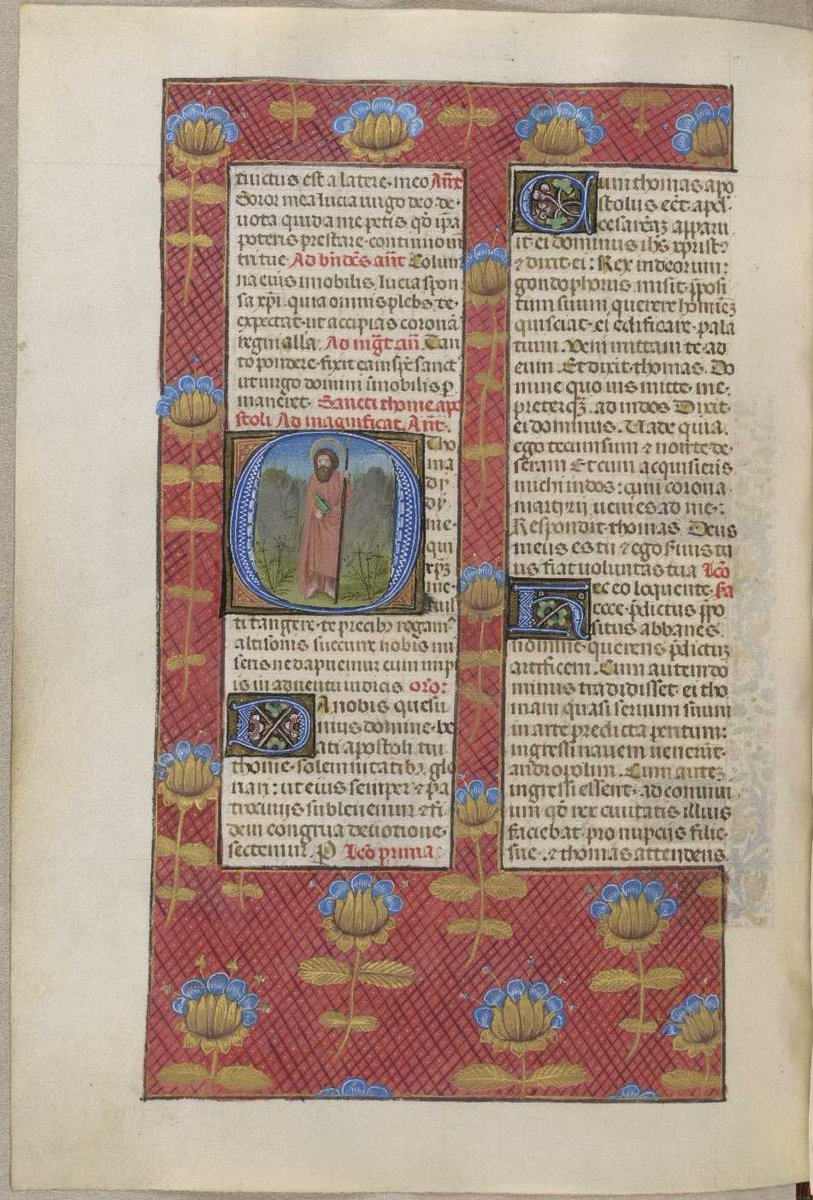 tuictus est a latere. meo Ant
Soror mea lucia uirgo deo de-
uota quid a me petis qd ipsa
poteris prestare continuo m
tri tue Ad bndcs ant Colum
na eius inmobilis, lucia spon
sa xpi. quia omnis plebs te.
expectat. ut accipias coronā
regni alla. Ad mgt an. Tan
to pondere. fixit eam spr sanct
ut uirgo domini inmobilis p
maneret. Sancti thome apo
stoli Ad magnificat. Ant.
O Tho
ma
dy
dy.
me.
qui
xpm
me.
ruis
ti tangere. te precibz rogam
altisonis succurre nobis mi
seris ne dapnemur cum impi
is in aduentu iudicis oro:
Da nobis quesu
mus domine. be
ati apostoli tui
thome. solemnitatibz glo
riari: ut eius semper & pa
trociniis subleuemur & fi
dem congrua deuotione.
sectemur. P Lco prima.
Cum thomas apo
stolus ect apd
cesareaz apparu
it ei dominus ihs xprist
& dixit ei: Rex indeorum:
gondophorus. misit pposi
tum suum. querere hominez
qui sciat. ei edificare. pala
tium. Veni mittam te ad
eum. Et dixit thomas. Do
mine quo uis mitte me.
preterqz. ad indos Dixit.
ei dominus. Uade quia.
ego tecum sum & non te de-
seram Et cum acquisieris
michi indos: cum corona.
martyrii uenies ad me:
Respondit thomas Deus
meus es tu & ego siuus tu
us fiat uoluntas tua Lco
Hec eo loquente. Ea
ecce. pdictus ppo
situs abbanes.
nomine. querens pdictuz
artificem. Cum autem do
minus tradidisset ei tho
mam quasi seruum suum
in arte predicta peritum:
ingressi nauem uenerūt.
andropolim. Cum autez
ingressi essent. ad conuiui
um qd rex ciuitatis illius
faciebat pro nupciis filie
sue. & thomas attendens